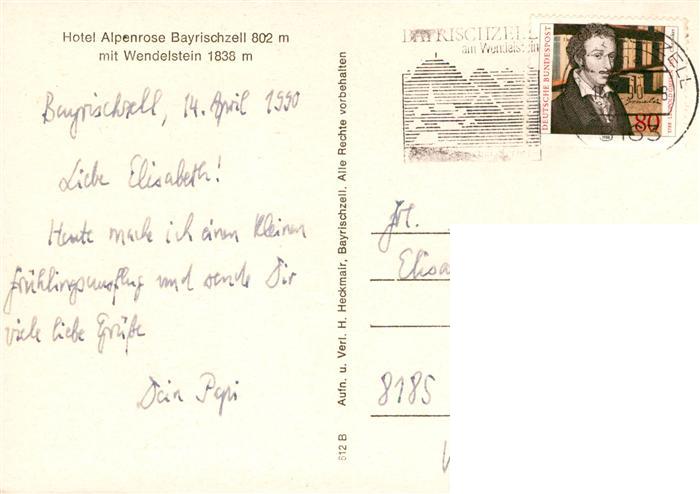 Hotel Alpenrose Bayrischzell 802 m
mit Wendelstein 1838 m
Bayrischzell, 14. April 1990
Liebe Elisabeth!
Heute mache ich einen kleinen
Frühlingsausflug und sende Dir
viele liebe Grüße
Dein Papi
Aufn. u. Verl. H. Heckmair, Bayrischzell. Alle Rechte vorbehalten
612 B
BAYRISCHZELL
am Wendelstein
DEUTSCHE BUNDESPOST
80
ZELL
Frl.
Elisa
8185